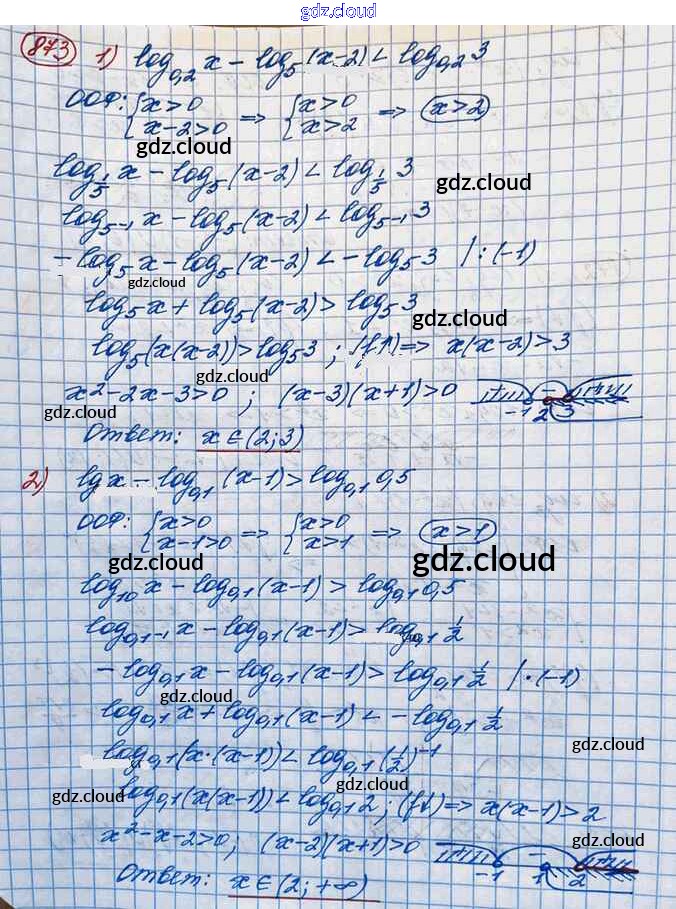 gdz.cloud
873 1) log₀,₂ x − log₅ (x−2) < log₀,₂ 3
ООФ: {x>0 x−2>0 => {x>0 x>2 => x>2
gdz.cloud
log_{1/5} x − log₅ (x−2) < log_{1/5} 3
gdz.cloud
log_{5⁻¹} x − log₅ (x−2) < log_{5⁻¹} 3
− log₅ x − log₅ (x−2) < − log₅ 3 | : (−1)
gdz.cloud
log₅ x + log₅ (x−2) > log₅ 3
gdz.cloud
log₅ (x(x−2)) > log₅ 3 ; (f↑) => x(x−2) > 3
gdz.cloud
x² − 2x − 3 > 0 ; (x−3)(x+1) > 0 + − + −1 2 3
gdz.cloud
Ответ: x ∈ (2; 3)
2) lg x − log₀,₁ (x−1) > log₀,₁ 0,5
ООФ: {x>0 x−1>0 => {x>0 x>1 => x>1
gdz.cloud
gdz.cloud
log₁₀ x − log₀,₁ (x−1) > log₀,₁ 0,5
log_{0,1⁻¹} x − log₀,₁ (x−1) > log₀,₁ 1/2
gdz.cloud
− log₀,₁ x − log₀,₁ (x−1) > log₀,₁ 1/2 | · (−1)
gdz.cloud
log₀,₁ x + log₀,₁ (x−1) < − log₀,₁ 1/2
gdz.cloud
log₀,₁ (x·(x−1)) < log₀,₁ (1/2)⁻¹
gdz.cloud
gdz.cloud
log₀,₁ (x(x−1)) < log₀,₁ 2 ; (f↓) => x(x−1) > 2
gdz.cloud
x² − x − 2 > 0 ; (x−2)(x+1) > 0 + − + −1 1 2
gdz.cloud
Ответ: x ∈ (2; +∞)
gdz.cloud